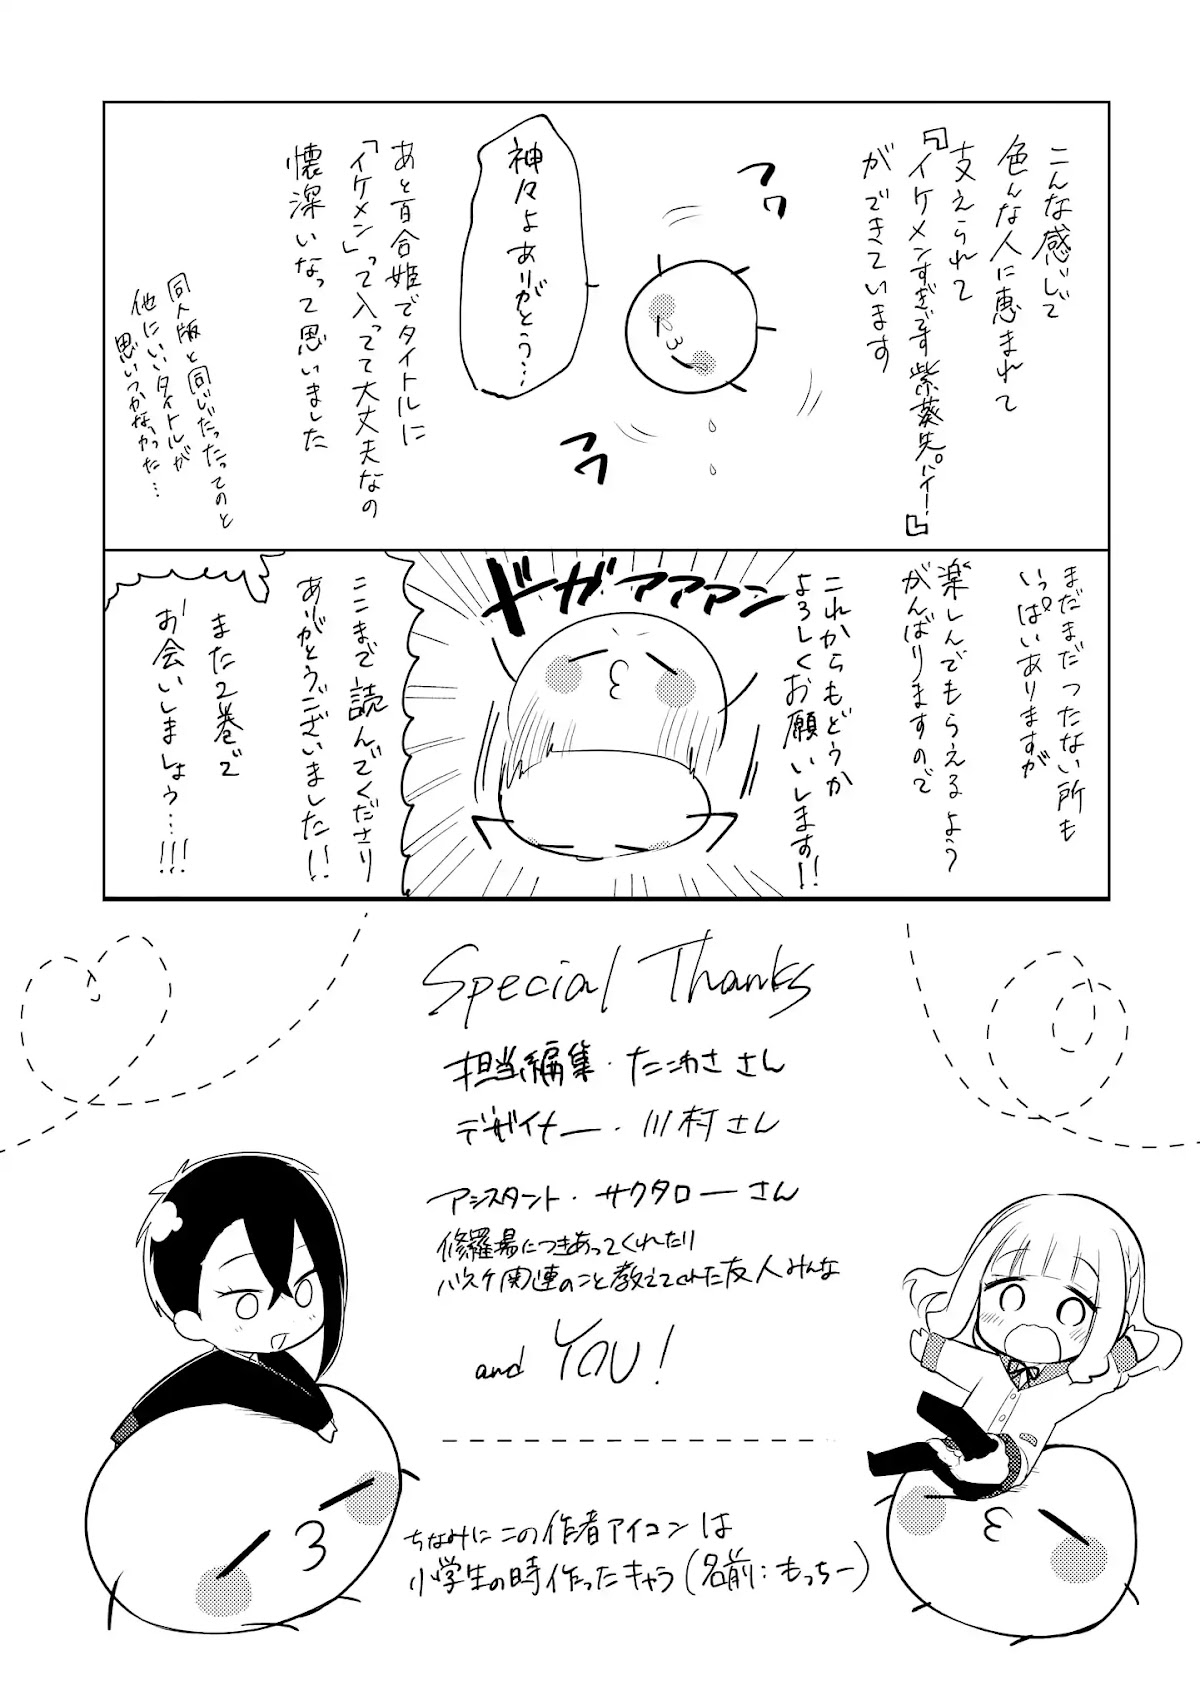 こんな感じで
色んな人に恵まれて
支えられて
『イケメンすぎです紫葵先パイ！』
ができています
フワ
フワ
神々よありがとう…
あと百合姫でタイトルに
「イケメン」って入ってて大丈夫なの
懐深いなって思いました
同人版と同じだったってのと
他にいいタイトルが
思いつかなかった…
まだまだつたない所も
いっぱいありますが
楽しんでもらえるよう
がんばりますので
これからもどうか
よろしくお願いします!!
ドガァァァン
ここまで読んでくださり
ありがとうございました!!
また2巻で
お会いしましょう…!!!
Special Thanks
担当編集・たこわささん
デザイナー・川村さん
アシスタント・サクタローさん
修羅場につきあってくれたり
バスケ関連のこと教えてくれた友人みんな
and YOU!
ちなみにこの作者アイコンは
小学生の時作ったキャラ(名前:もっちー)